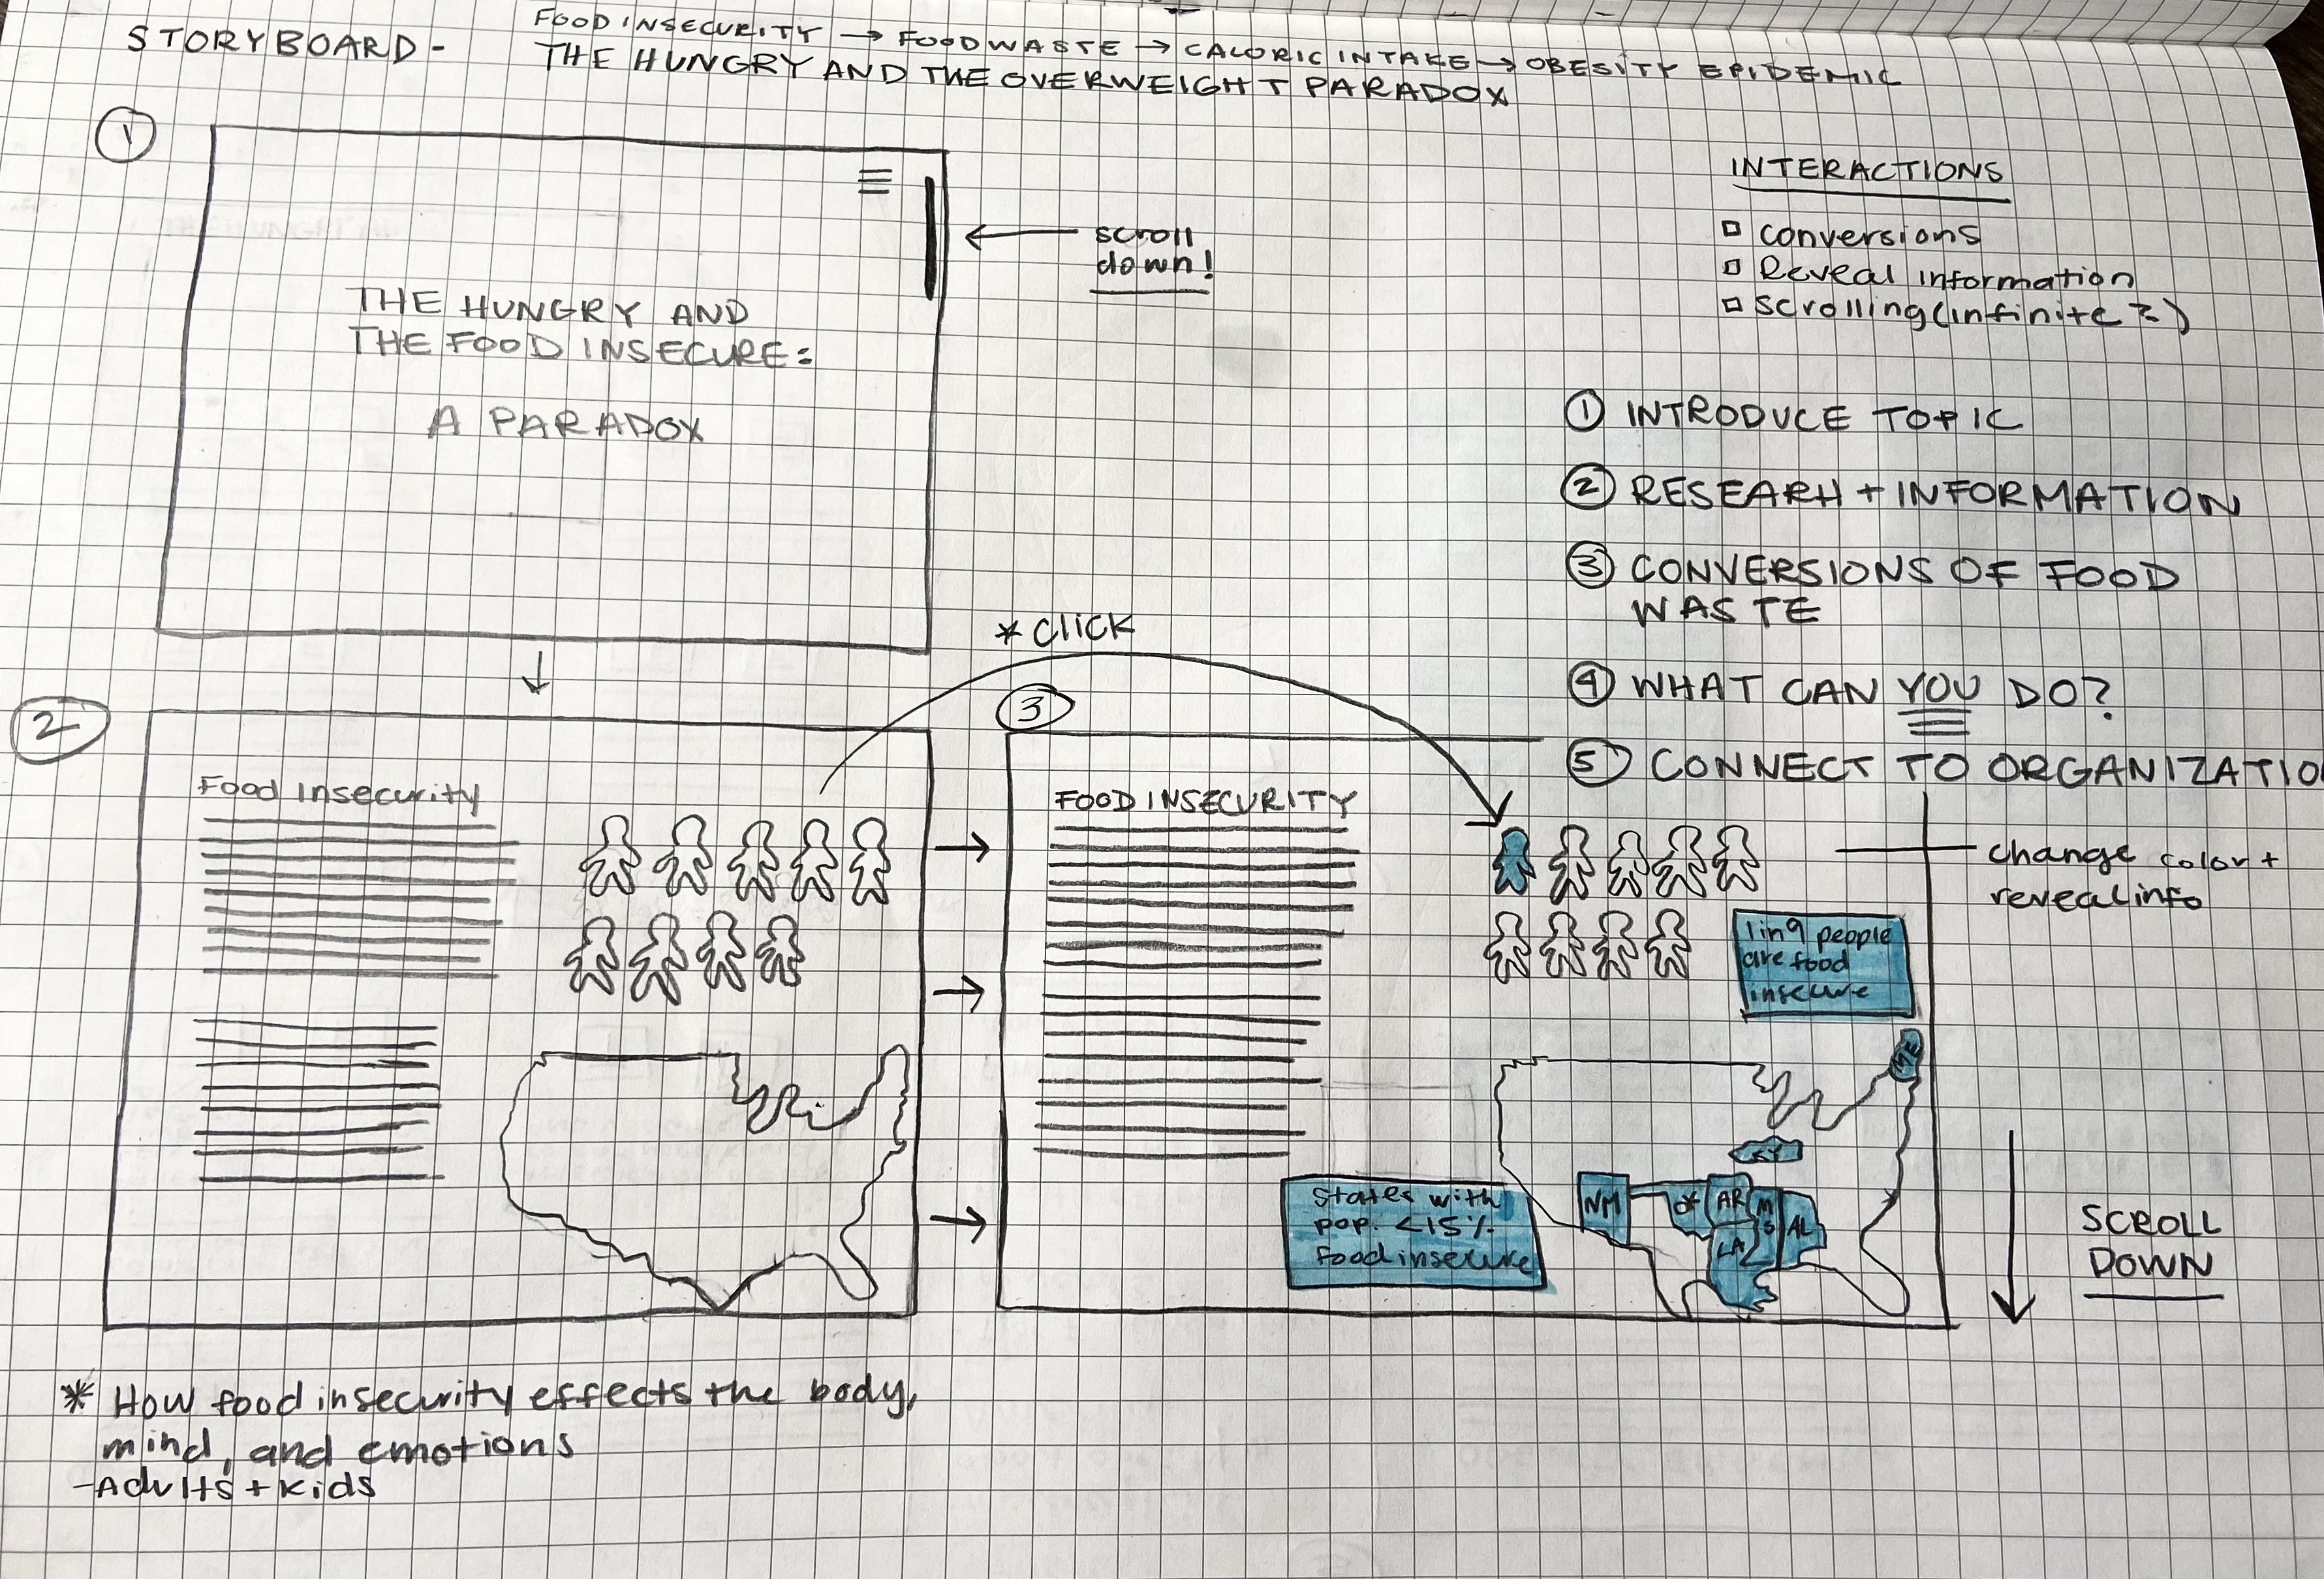 STORYBOARD -
FOOD INSECURITY → FOOD WASTE → CALORIC INTAKE → OBESITY EPIDEMIC
THE HUNGRY AND THE OVERWEIGHT PARADOX
1
THE HUNGRY AND
THE FOOD INSECURE:
A PARADOX
scroll
down!
INTERACTIONS
conversions
Reveal information
scrolling (infinite?)
1 INTRODUCE TOPIC
2 RESEARH + INFORMATION
3 CONVERSIONS OF FOOD
WASTE
4 WHAT CAN YOU DO?
5 CONNECT TO ORGANIZATIO
* click
2
Food insecurity
3
FOOD INSECURITY
change color +
reveal info
1 in 9 people
are food
insecure
ME
KY
NM
OK
AR
MS
AL
LA
States with
pop. <15%
food insecure
SCROLL
DOWN
* How food insecurity effects the body,
mind, and emotions
- Adults + kids